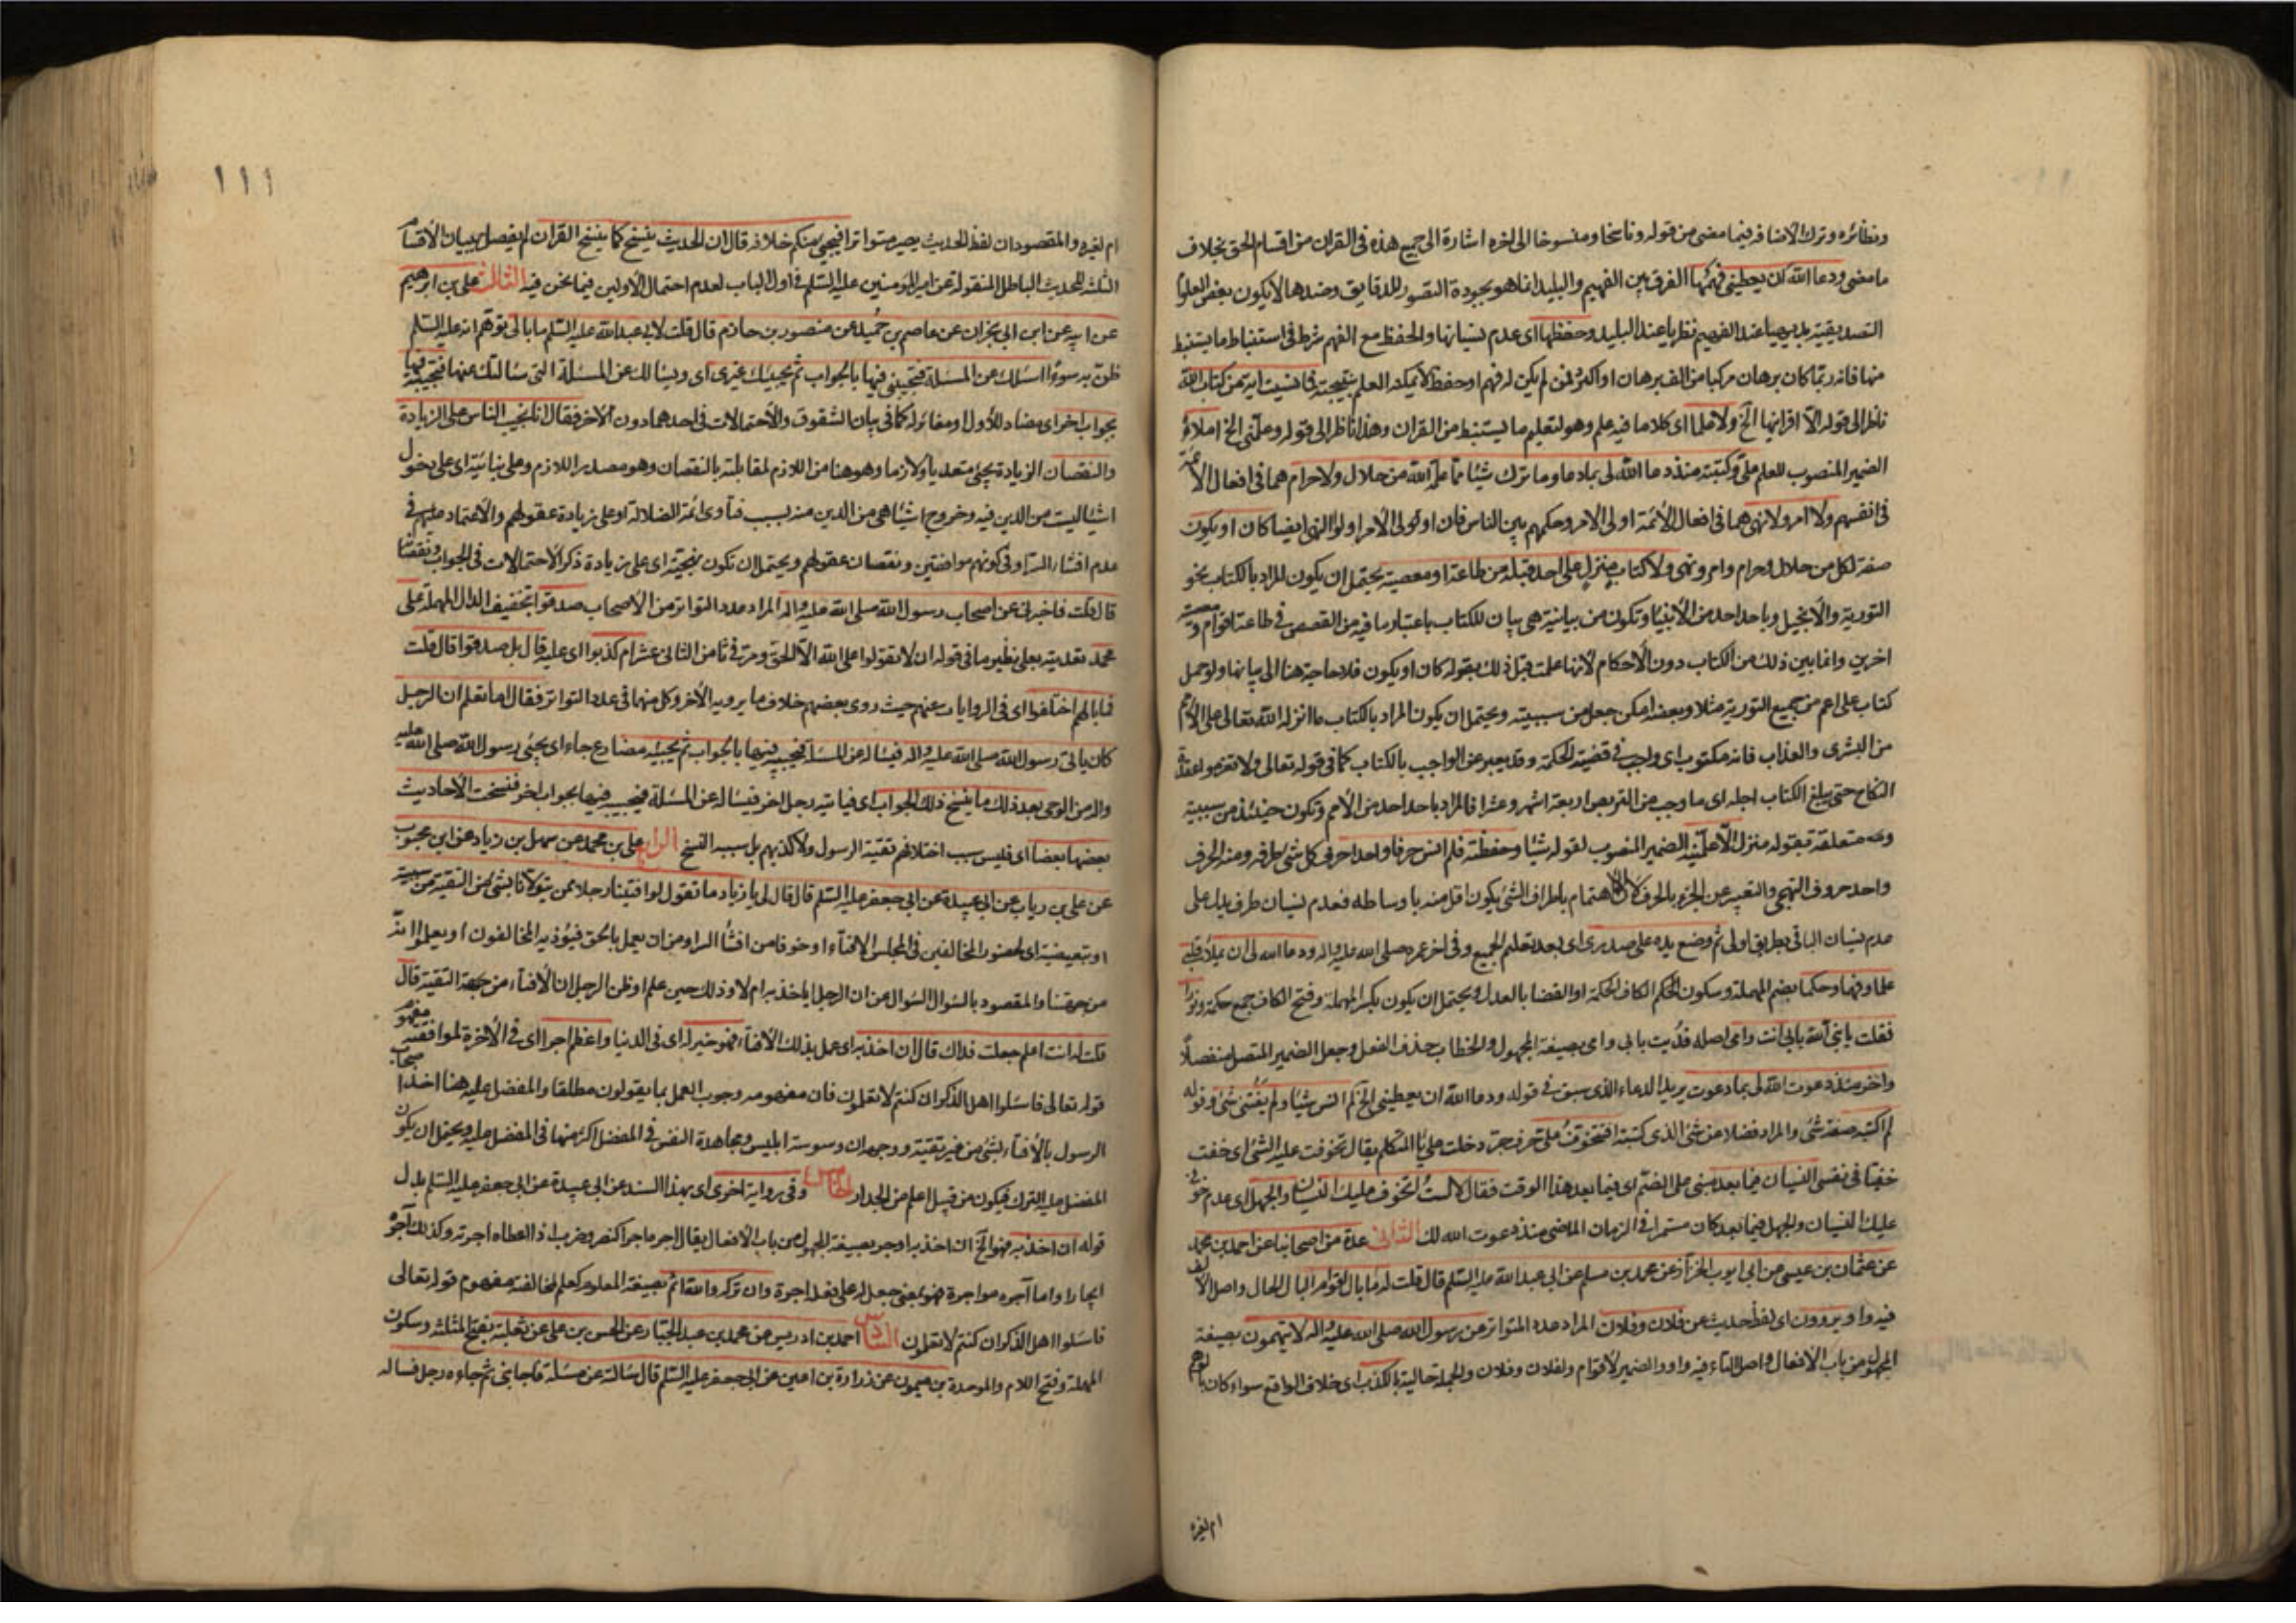 ونظائره وترك الاضافة فيما مضى من قوله وناسخا ومنسوخا الى اخره اشارة الى جميع هذه فى القران من اقسام الحق بخلاف
ما مضى ودعا الله ان يعطينى فهمها الفرق بين الفهيم والبليد انما هو بجودة التصور للدقايق وضدها لا يكون بعض العلوم
التصديقية بديهيا عند الفهيم نظريا عند البليد وحفظها اى عدم نسيانها والحفظ مع الفهم شرط فى استنباط ما يستنبط
منها فانه ربما كان برهان مركبا من الف برهان او اكثر فمن لم يكن له فهم او حفظ لا يمكنه العلم بنتيجته فما نسيت اية من كتاب الله
ناظر الى قوله الا اقرانيها الخ ولا علما اى كلاما فيه علم وهو لتعليم ما يستنبط من القران وهذا ناظر الى قوله وعلمنى الخ املاه
الضمير المنصوب للعلم على وكتبته منذ دعا الله لى بما دعا وما ترك شيئا مما علمه الله من حلال ولا حرام هما فى افعال الائمة
فى انفسهم ولا امر ولا نهى هما فى افعال الائمة اولى الامر وحكمهم بين الناس فان اولى الامر اولو النهى ايضا كان او يكون
صفة لكل من حلال وحرام وامر ونهى ولا كتاب منزل على احد قبله من طاعة او معصية يحتمل ان يكون المراد بالكتاب نحو
التورية والانجيل وباحد احد من الانبياء وتكون من بيانية هى بيان للكتاب باعتبار ما فيه من القصص فى طاعة اقوام ومعصية
اخرين وانما بين ذلك من الكتاب دون الاحكام لانها علمت قبل ذلك بقوله كان او يكون فلا حاجة هنا الى بيانها ولو حمل
كتاب على اعم من جميع التورية مثلا وبعضه امكن جعل من سببية ويحتمل ان يكون المراد بالكتاب ما انزله الله تعالى على الامم
من البشرى والعذاب فانه مكتوب اى واجب فى قضية الحكمة وقد يعبر عن الواجب بالكتاب كما فى قوله تعالى ولا تعزموا عقدة
النكاح حتى يبلغ الكتاب اجله اى ما وجب من التربص اربعة اشهر وعشرا فالمراد باحد احد من الامم وتكون حينئذ من سببية
ومتعلقة بقوله منزل الا علمنيه الضمير المنصوب لقوله شيئا وحفظته فلم انس حرفا واحدا حرف كل شى طرفه ومنه الحرف
واحد حروف التهجى والتعبير عن الجزء بالحرف لان الاهتمام باطراف الشئ يكون اقل منه باوساطه فعدم نسيان طرف يدل على
عدم نسيان الباقى بطريق اولى ثم وضع يده على صدرى اى بعد تعليم الجميع وفى اخر عمره صلى الله عليه واله ودعا الله لى ان يملا قلبى
علما وفهما وحكما بضم المهملة وسكون الكاف الحكمة او القضا بالعدل ويحتمل ان يكون بكسر المهملة وفتح الكاف جمع حكمة ونورا
فقلت يا نبى الله بابى انت وامى اصله فديت بابى وامى بصيغة المجهول والخطاب حذف الفعل وجعل الضمير المتصل منفصلا
واخر منذ دعوت الله لى بما دعوت يريد الدعاء الذى سبق فى قوله ودعا الله ان يعطينى الخ لم انس شيئا ولم يفتنى شئ وقوله
لم اكتبه صفة شئ والمراد فضلا من شئ الذى كتبته افتتخوف على حرف جر دخلت على يا المتكلم يقال تخوفت عليه الشئ اى خفت
خفيا فى نفسى النسيان فيما بعد مبنى على الضم اى فيما بعد هذا الوقت فقال لا لست اتخوف عليك النسيان والجهل اى عدم خوفى
عليك النسيان والجهل فيما بعد كان مستمرا فى الزمان الماضى منذ دعوت الله لك الثانى عدة من اصحابنا عن احمد بن محمد
عن عثمان بن عيسى عن ابى ايوب الخزاز عن محمد بن مسلم عن ابى عبد الله عليه السلم قال قلت له ما بال اقوام البال الحال واصل الالف
فيه واو يروون اى لفظ حديث عن فلان وفلان المراد عدد المتواتر عن رسول الله صلى الله عليه واله لا يتهمون بصيغة
المجهول من باب الافعال واصل التاء فيه واو والضمير لاقوام ولفلان وفلان والجملة حالية بالكذب اى خلاف الواقع سواء كان
ام لغيره
١١١
ام لغيره والمقصود ان لفظ الحديث يصير متواترا فيجئ منكم خلافه قال ان الحديث ينسخ كما ينسخ القران لم يفصل ببيان الاقسام
الثلثة للحديث الباطل المنقولة عن امير المؤمنين عليه السلم فى اول الباب لعدم احتمال الاولين فيما نحن فيه الثالث على بن ابرهيم
عن ابيه عن ابن ابى نجران عن عاصم بن حميد عن منصور بن حازم قال قلت لابى عبد الله عليه السلم ما بالى توهم انه عليه السلم
ظن به سوءا اسئلك عن المسئلة فتجيبنى فيها بالجواب ثم يجيئك غيرى اى ويسالك عن المسئلة التى سالتك عنها فتجيبه فيها
بجواب اخر اى مضاد للاول او مغاير له كما فى بيان الشقوق والاحتمالات فى احدهما دون الاخر فقال انا نجيب الناس على الزيادة
والنقصان الزيادة يجئ متعديا ولازما وهو هنا من اللازم لمقابلته بالنقصان وهو مصدر اللازم وعلى بنائية اى على دخول
اشيا ليست من الدين فيه وخروج اشيا هى من الدين منه بسبب فتاوى ائمة الضلالة او على زيادة عقولهم والاعتماد عليهم فى
عدم افشاء السر او فى كونهم موافقين ونقصان عقولهم ويحتمل ان تكون نهجية اى على زيادة ذكر الاحتمالات فى الجواب ونقصانها
قال قلت فاخبرنى عن اصحاب رسول الله صلى الله عليه واله المراد عدد التواتر من الاصحاب صدقوا بتخفيف الدال المهملة على
محمد تعديته بعلى نظير ما فى قوله ان لا تقولوا على الله الا الحق ومر فى ثامن الثانى عشر ام كذبوا اى عليه قال بل صدقوا قال قلت
فما بالهم اختلفوا اى فى الروايات عنهم حيث روى بعضهم خلاف ما يرويه الاخر وكل منهما فى عدد التواتر فقال اما تعلم ان الرجل
كان ياتى رسول الله صلى الله عليه واله فيساله عن المسألة فيجيبه فيها بالجواب ثم يجيئه مضارع جاء اى يجئ رسول الله صلى الله عليه
واله من الوحى بعد ذلك ما ينسخ ذلك الجواب اى فياتيه رجل اخر فيساله عن المسئلة فيجيبه فيها بجواب اخر فنسخت الاحاديث
بعضها بعضا اى فليس سبب اختلافهم تقية الرسول ولا كذبهم بل سببه النسخ الرابع على بن محمد عن سهل بن زياد عن ابن محبوب
عن على بن رياب عن ابى عبيدة عن ابى جعفر عليه السلم قال قال لى يا زياد ما تقول لو افتينا رجلا ممن يتولانا بشئ من التقية من سببية
او تبعيضية اى لحضور المخالفين فى المجلس الافتاء او خوفا من افشاء السر او من ان يعمل بالحق فيؤذيه المخالفون او يعلموا انه
من جهتنا والمقصود بالسؤال السؤال عن ان الرجل اياخذ به ام لا وذلك حين علم او ظن الرجل ان الافتاء من جهة التقية قال
قلت له انت اعلم جعلت فداك قال ان اخذ به اى عمل بذلك الافتاء فهو خير له اى فى الدنيا واعظم اجرا اى فى الاخرة لموافقته مفهوم
قوله تعالى فاسئلوا اهل الذكر ان كنتم لا تعلمون فان مفهومه وجوب العمل بما يقولون مطلقا والمفضل عليه هنا اخذ اصحاب
الرسول بالافتاء بشئ من غير تقية ووجهه ان وسوسة ابليس ومجاهدة النفس فى المفضل اكثر منها فى المفضل عليه ويحتمل ان يكون
المفضل عليه الترك فيكون من قبيل اعلم من الجدار الخامس وفى رواية اخرى اى بهذا السند عن ابى عبيدة عن ابى جعفر عليه السلم بدل
قوله ان اخذ به فهو الخ ان اخذ به اوجر بصيغة المجهول من باب الافعال يقال اجره ياجره كنصر وضرب اذا اعطاه اجرته وكذلك آجره
ايجارا واما آجره مواجرة فهو بمعنى جعل له على فعله اجرة وان تركه والله اثم بصيغة المعلوم كعلم لمخالفته مفهوم قوله تعالى
فاسئلوا اهل الذكر ان كنتم لا تعلمون السادس احمد بن ادريس عن محمد بن عبد الجبار عن الحسن بن على عن ثعلبة بفتح المثلثة وسكون
المهملة وفتح اللام والموحدة بن ميمون عن زرارة بن اعين عن ابى جعفر عليه السلم قال سالته عن مسئلة فاجابنى ثم جاءه رجل فساله